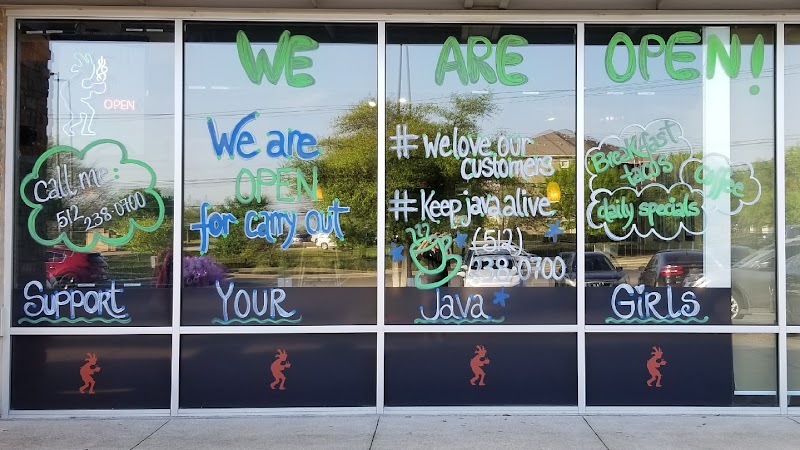 WE ARE OPEN!
OPEN
call me:
512
238-0700
We are
OPEN
for carry out
# We love our
customers
# Keep java alive
(512)
238-0700
Breakfast
tacos
Coffee
daily specials
Support Your Java Girls